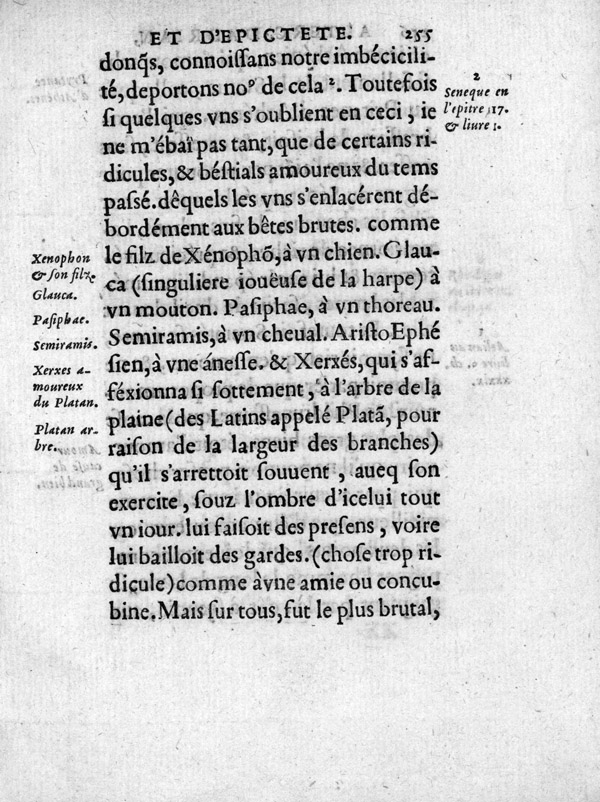 ET D'EPICTETE. 255
donq̃s, connoiſſans notre imbécicili-
té, deportons noꝰ de cela ². Toutefois
ſi quelques vns s'oublient en ceci, ie
ne m'ébaï pas tant, que de certains ri-
dicules, & béſtials amoureux du tems
paſſé. dêquels les vns s'enlacérent dé-
bordément aux bêtes brutes. comme
le filz de Xénophõ, à vn chien. Glau-
ca (ſinguliere ioueüſe de la harpe) à
vn mouton. Paſiphae, à vn thoreau.
Semiramis, à vn cheual. Ariſto Ephé
ſien, à vne áneſſe. & Xerxés, qui s'aſ-
féxionna ſi ſottement, à l'arbre de la
plaine (des Latins appelé Platã, pour
raiſon de la largeur des branches)
qu'il s'arrettoit ſouuent, aueq ſon
exercite, ſouz l'ombre d'icelui tout
vn iour. lui faiſoit des preſens, voire
lui bailloit des gardes. (choſe trop ri-
dicule) comme à vne amie ou concu-
bine. Mais ſur tous, fut le plus brutal,
2
Seneque en
l'epitre 117.
& liure 1.
Xenophon
& ſon filz.
Glauca.
Paſiphae.
Semiramis.
Xerxes a-
moureux
du Platan.
Platan ar-
bre.